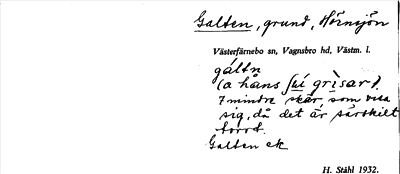 Galten, grund, Hörnsjön
Västerfärnebo sn, Vagnsbro hd, Västm. l.
gáltn
(a håns su̇i grìsar).
7 mindre skär, som visa
sig, då det är särskilt
torrt.
Galten ek
H. Ståhl 1932.